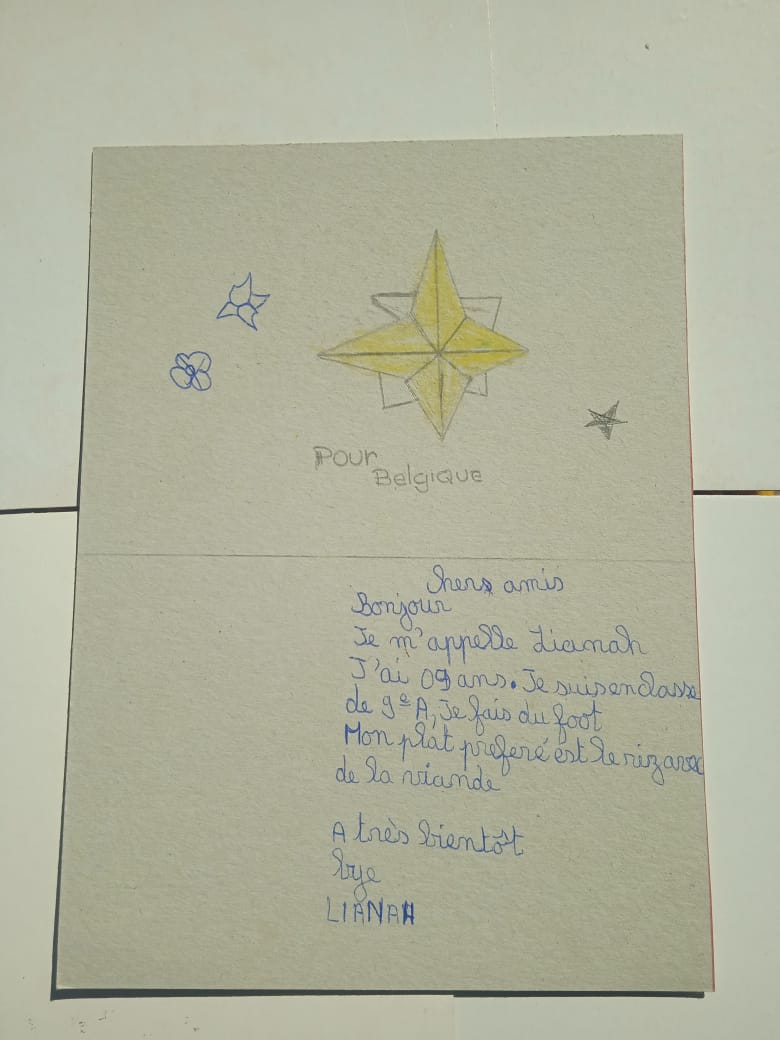 Pour
Belgique
Chers amis
Bonjour
Je m'appelle Lianah
J'ai 09 ans. Je suis en classe
de 9e A, Je fais du foot
Mon plat preferé est le riz avec
de la viande
A très bientôt
bye
LIANAH